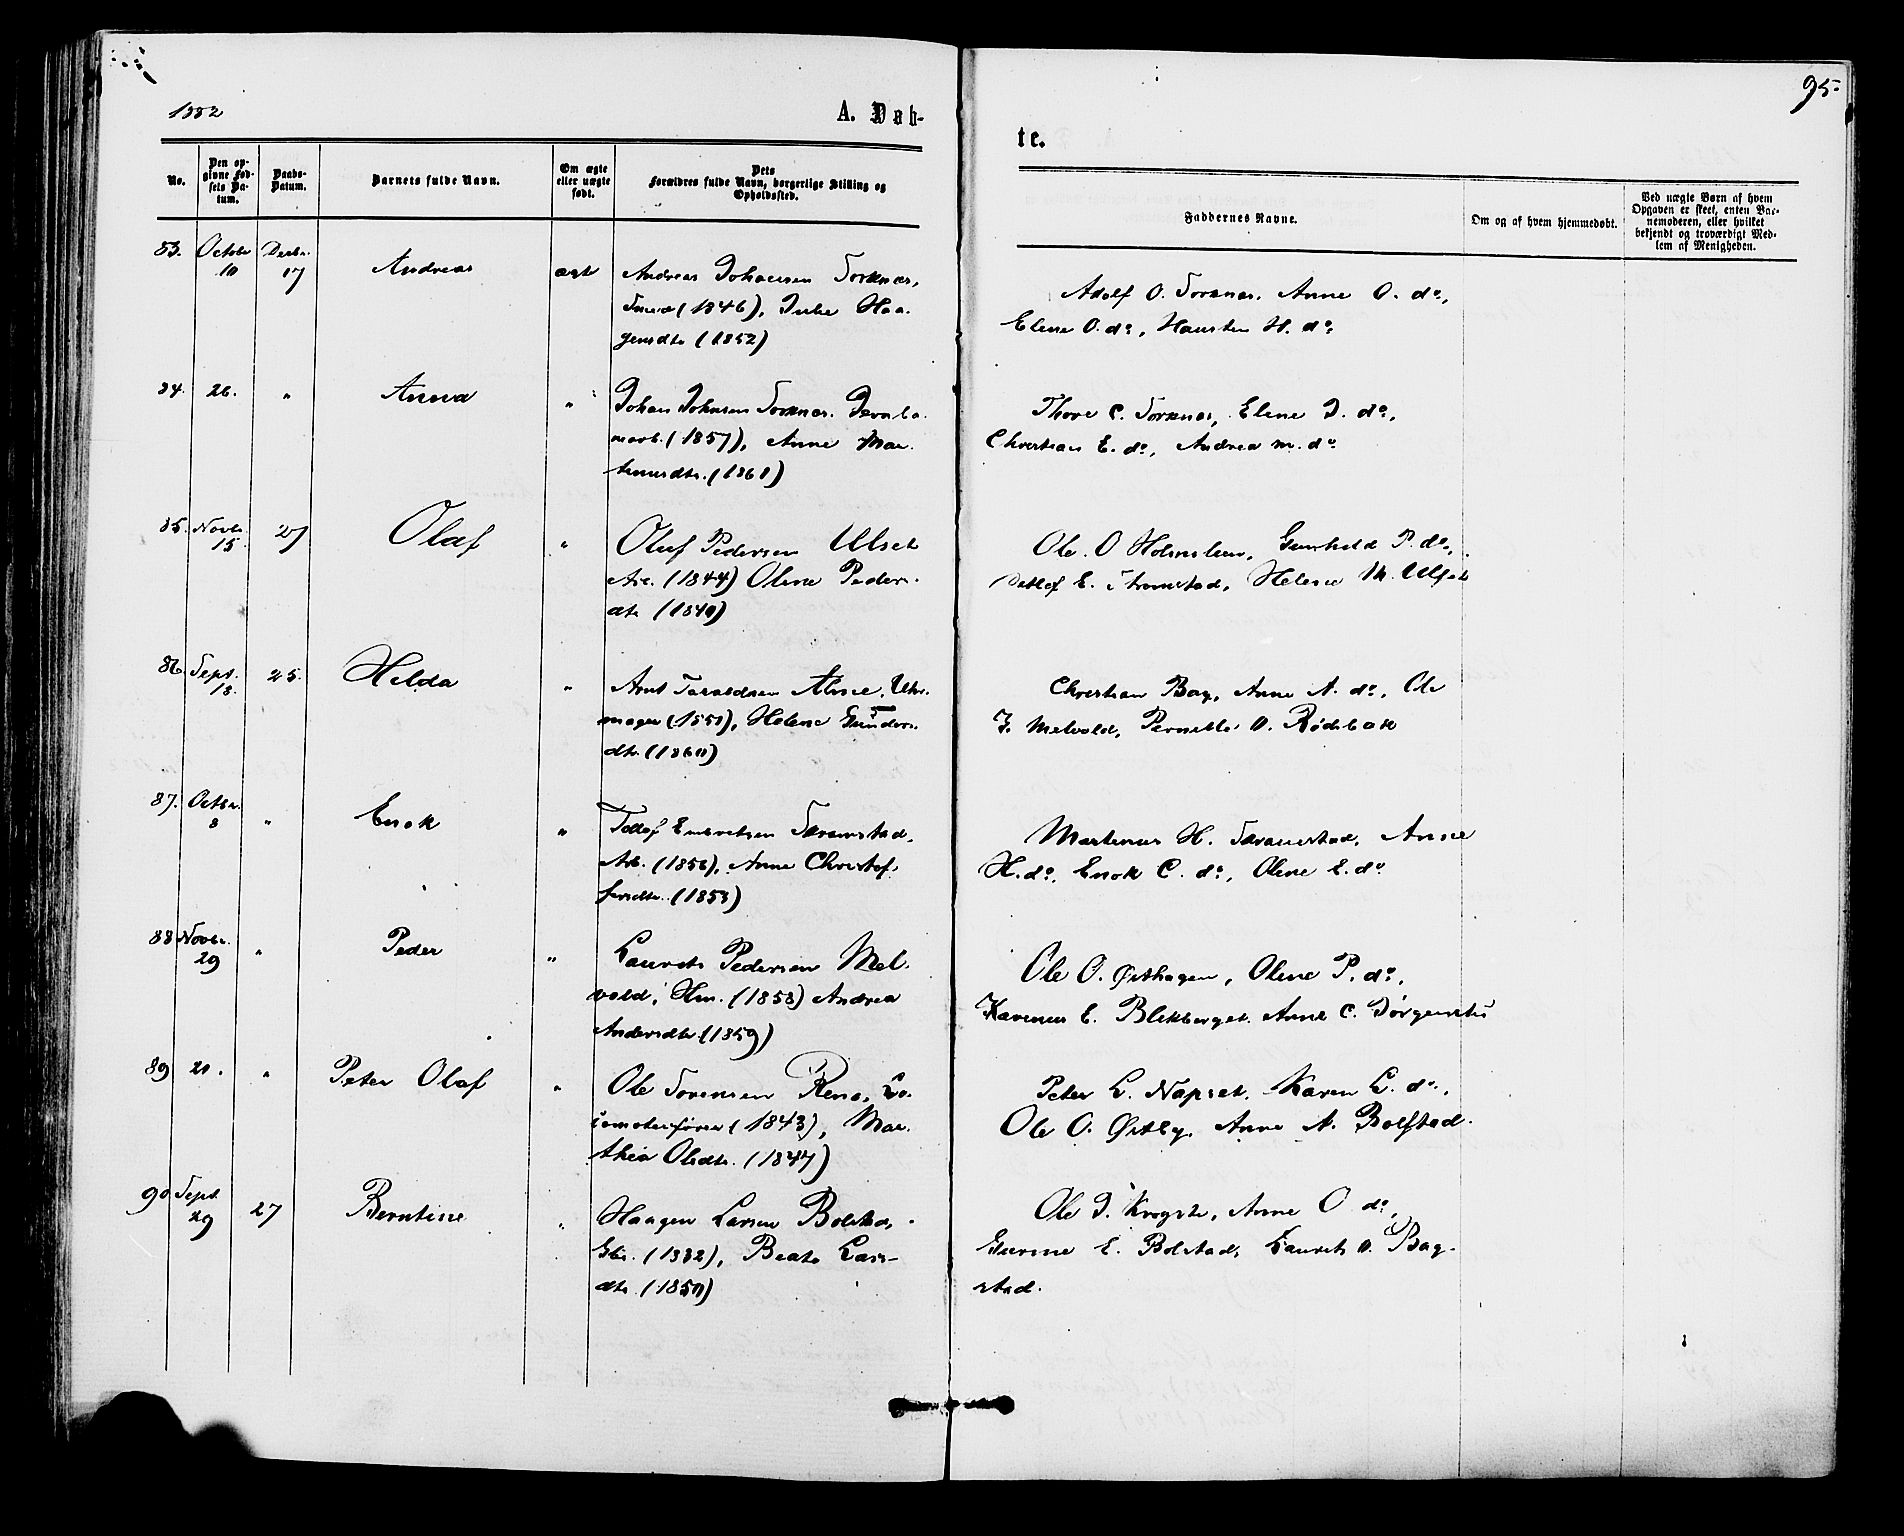 95
1882
A. Døb-
te.
No.
Den op-
givne Fød-
sels Da-
tum.
Daabs-
Datum.
Barnets fulde Navn.
Om ægte
eller uægte
født.
Dets
Forældres fulde Navn, borgerlige Stilling og
Opholdssted.
Faddernes Navne.
Om og af hvem hjemmedøbt.
Ved uægte Børn af hvem
Opgaven er skeet, enten Bar-
nemoderen, eller hvilket
bekjendt og troværdigt Med-
lem af Menigheden.
83. Octobr 10 Decbr. 17 Andreas ægt Andreas Johansen Torsnes,
(1846), Julie Haa-
gensdtr (1852)
Adolf O. Torsnes, Anne O. do,
Elene O. do, H. do
84. 26. " Anna " Johan Johnsen Torsnes. Jernba-
nearb. (1857), Anne Mar-
tinusdtr. (1861)
Thore C. Torsnes, Elene J. do,
Christian E. do, Andrea M. do
85. Novbr. 15 27 Olaf " Oluf Pedersen Ulset
Arb. (1844) Oline Peders-
dtr (1840)
Ole O Holmslien, Gunhild P. do,
Detlef E. Tramstad, Helene M. Ulset
86. Sept. 18. 25. Hilda " Arnt Taraldsen Uhr-
mager (1851), Helene Gunders-
dtr. (1860)
Christian Bag, Anne A. do, Ole
J. Melvold, Pernille O. Rødsbak
87. Octbr. 8 " Enok " Tollef Embretsen Taramstad,
Arb. (1856), Anne Christof-
fersdtr. (1853)
Martinus H. Taramstad, Anne
H. do, Enok C. do, Oline E. do
88 Novbr. 29 " Peder " Laurits Pedersen Mel-
vold, Hm. (1858) Andrea
Andersdtr (1859)
Ole O. Østhagen, Oline P. do,
Karenus E. Blekberget. Anne C. Jørgensets
89 21. " Peter Olaf " Ole Sørensen Rena, Lo-
comotivfører (1843), Mar-
thea Olsdtr. (1847)
Peter L. Napset, Karen L. do,
Ole O. Østby, Anne A. Bolstad.
90 Sept. 29 27 Berntine " Haagen Larsen Bolstad,
Gbr. (1832), Beate Lars-
dtr. (1850)
Ole J. Krogstr, Anne O do,
Gurine E. Bolstad, Laurits O. Bag-
stad.